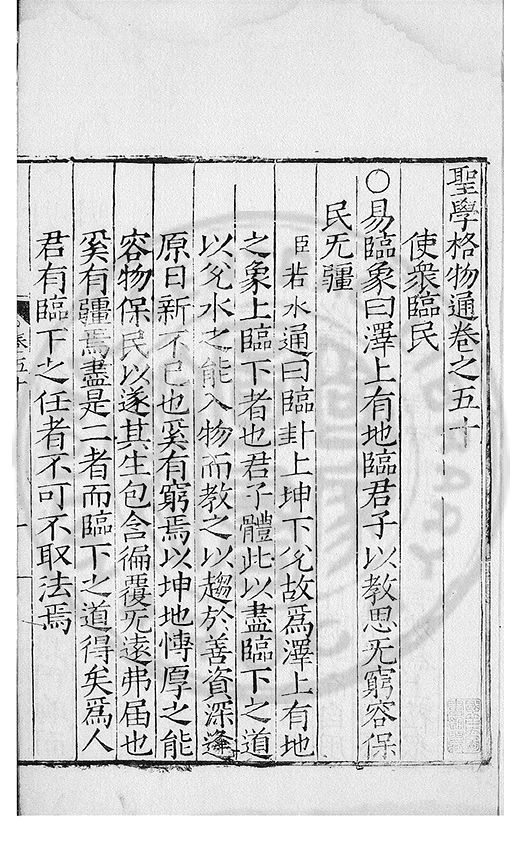 聖學格物通卷之五十
使衆臨民
○易臨象曰澤上有地臨君子以教思无窮容保
民无疆
臣若水通曰臨卦上坤下兌故爲澤上有地
之象上臨下者也君子體此以盡臨下之道
以兌水之能入物而教之以趨於善資深逢
原日新不已也奚有窮焉以坤地愽厚之能
容物保民以遂其生包含徧覆无遠弗届也
奚有疆焉盡是二者而臨下之道得矣爲人
君有臨下之任者不可不取法焉